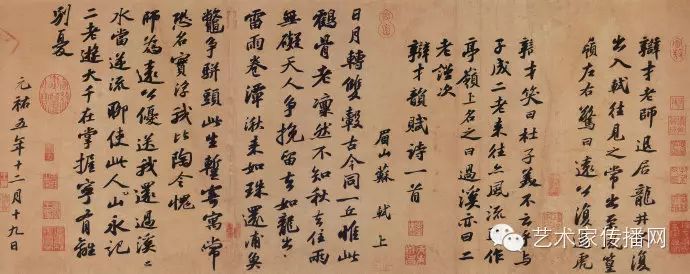 辯才老師退居龍井不復
出入軾往見之常出至風篁
嶺左右驚曰遠公復過虎
辯才笑曰杜子美不云乎與
子成二老來往亦風流因作
亭嶺上名之曰過溪亦曰二
老謹次
辯才韻賦詩一首
眉山蘇軾上
日月轉雙轂古今同一丘惟此
鶴骨老凜然不知秋去住兩
無礙天人爭挽留去如龍出山
雷雨卷潭湫來如珠還浦魚
鱉爭駢頭此生蹔寄寓常
恐名實浮我比陶令愧
師為遠公優送我還過溪溪
水當逆流聊使此人山永記
二老遊大千在掌握寧有離
別憂
元祐五年十二月十九日
艺术家传播网